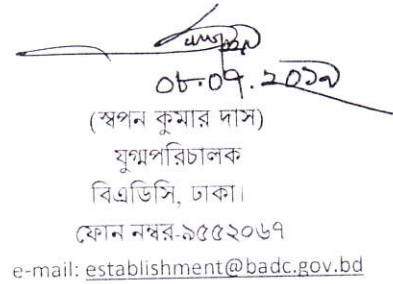 ০৮.০৭.২০১৯
(স্বপন কুমার দাস)
যুগ্মপরিচালক
বিএডিসি, ঢাকা।
ফোন নম্বর-৯৫৫২০৬৭
e-mail: establishment@badc.gov.bd